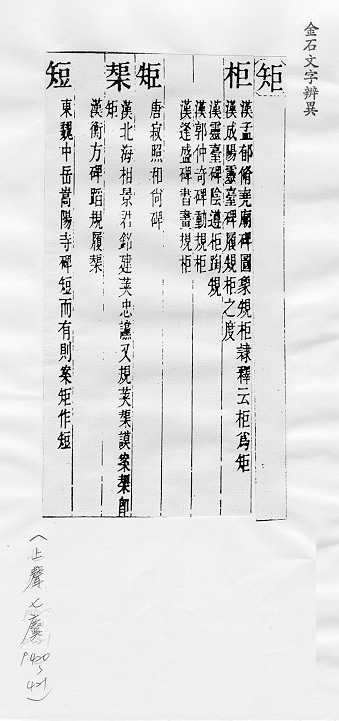 金石文字辨異
矩
柜 漢孟郁脩堯廟碑圖象規柜隷釋云柜為矩
漢成陽靈臺碑履規柜之度
漢靈臺碑陰遵柜蹈規
漢郭仲奇碑動規柜
漢逢盛碑晝規柜
矩 唐寂照和尚碑
榘 漢北海相景君銘建䇿忠讜又規䇿榘謨案榘即矩
漢衡方碑蹈規履榘
短 東魏中岳嵩陽寺碑短而有則案矩作短
(上聲 七麌
P420
~
421)